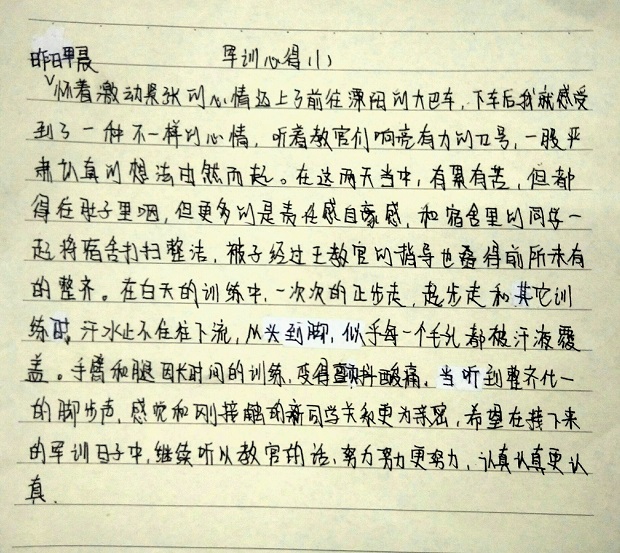 军训心得(1)
昨日早晨
怀着激动紧张的心情迈上了前往溧阳的大巴车,下车后我就感受
到了一种不一样的心情,听着教官们响亮有力的口号,一股严
肃认真的想法由然而起。在这两天当中,有累有苦,但都
得在肚子里咽,但更多的是责任感自豪感,和宿舍里的同学一
起将宿舍打扫整洁,被子经过王教官的指导也叠得前所未有
的整齐。在白天的训练中,一次次的正步走,起步走和其它训
练时,汗水止不住往下流,从头到脚,似乎每一个毛孔都被汗液覆
盖。手臂和腿因长时间的训练,变得酸痛。当听到整齐化一
的脚步声,感觉和刚接触的新同学关系更为亲密,希望在接下来
的军训日子中,继续听从教官的话,努力努力更努力,认真认真更认
真.